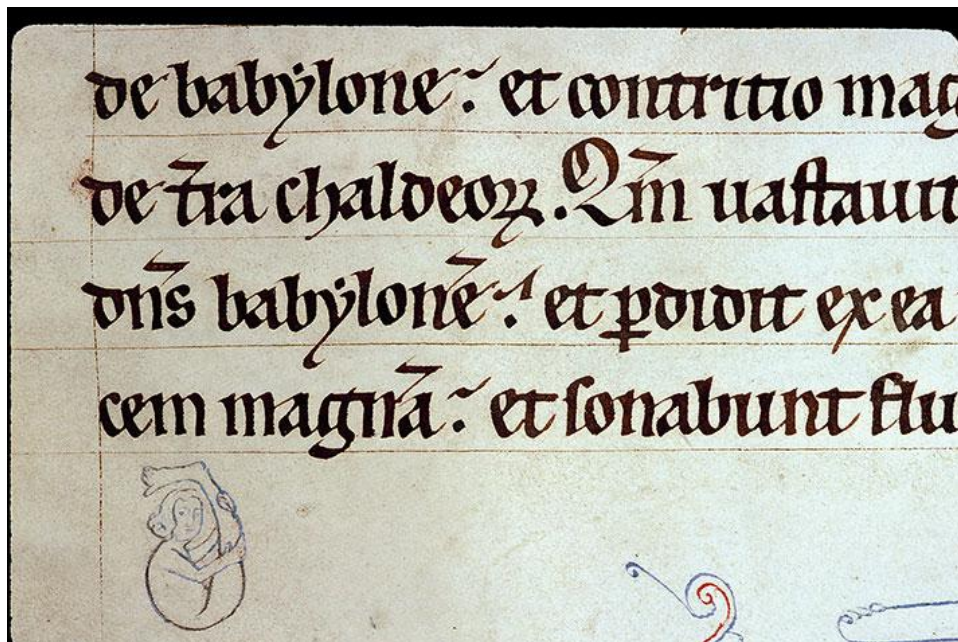 de babẏlone. et contritio mag
de t̄ra chaldeoꝝ. Qm̄ uastauit
dn̄s babẏlonē. et ꝑdidit ex ea
cem magnā. et sonabunt flu